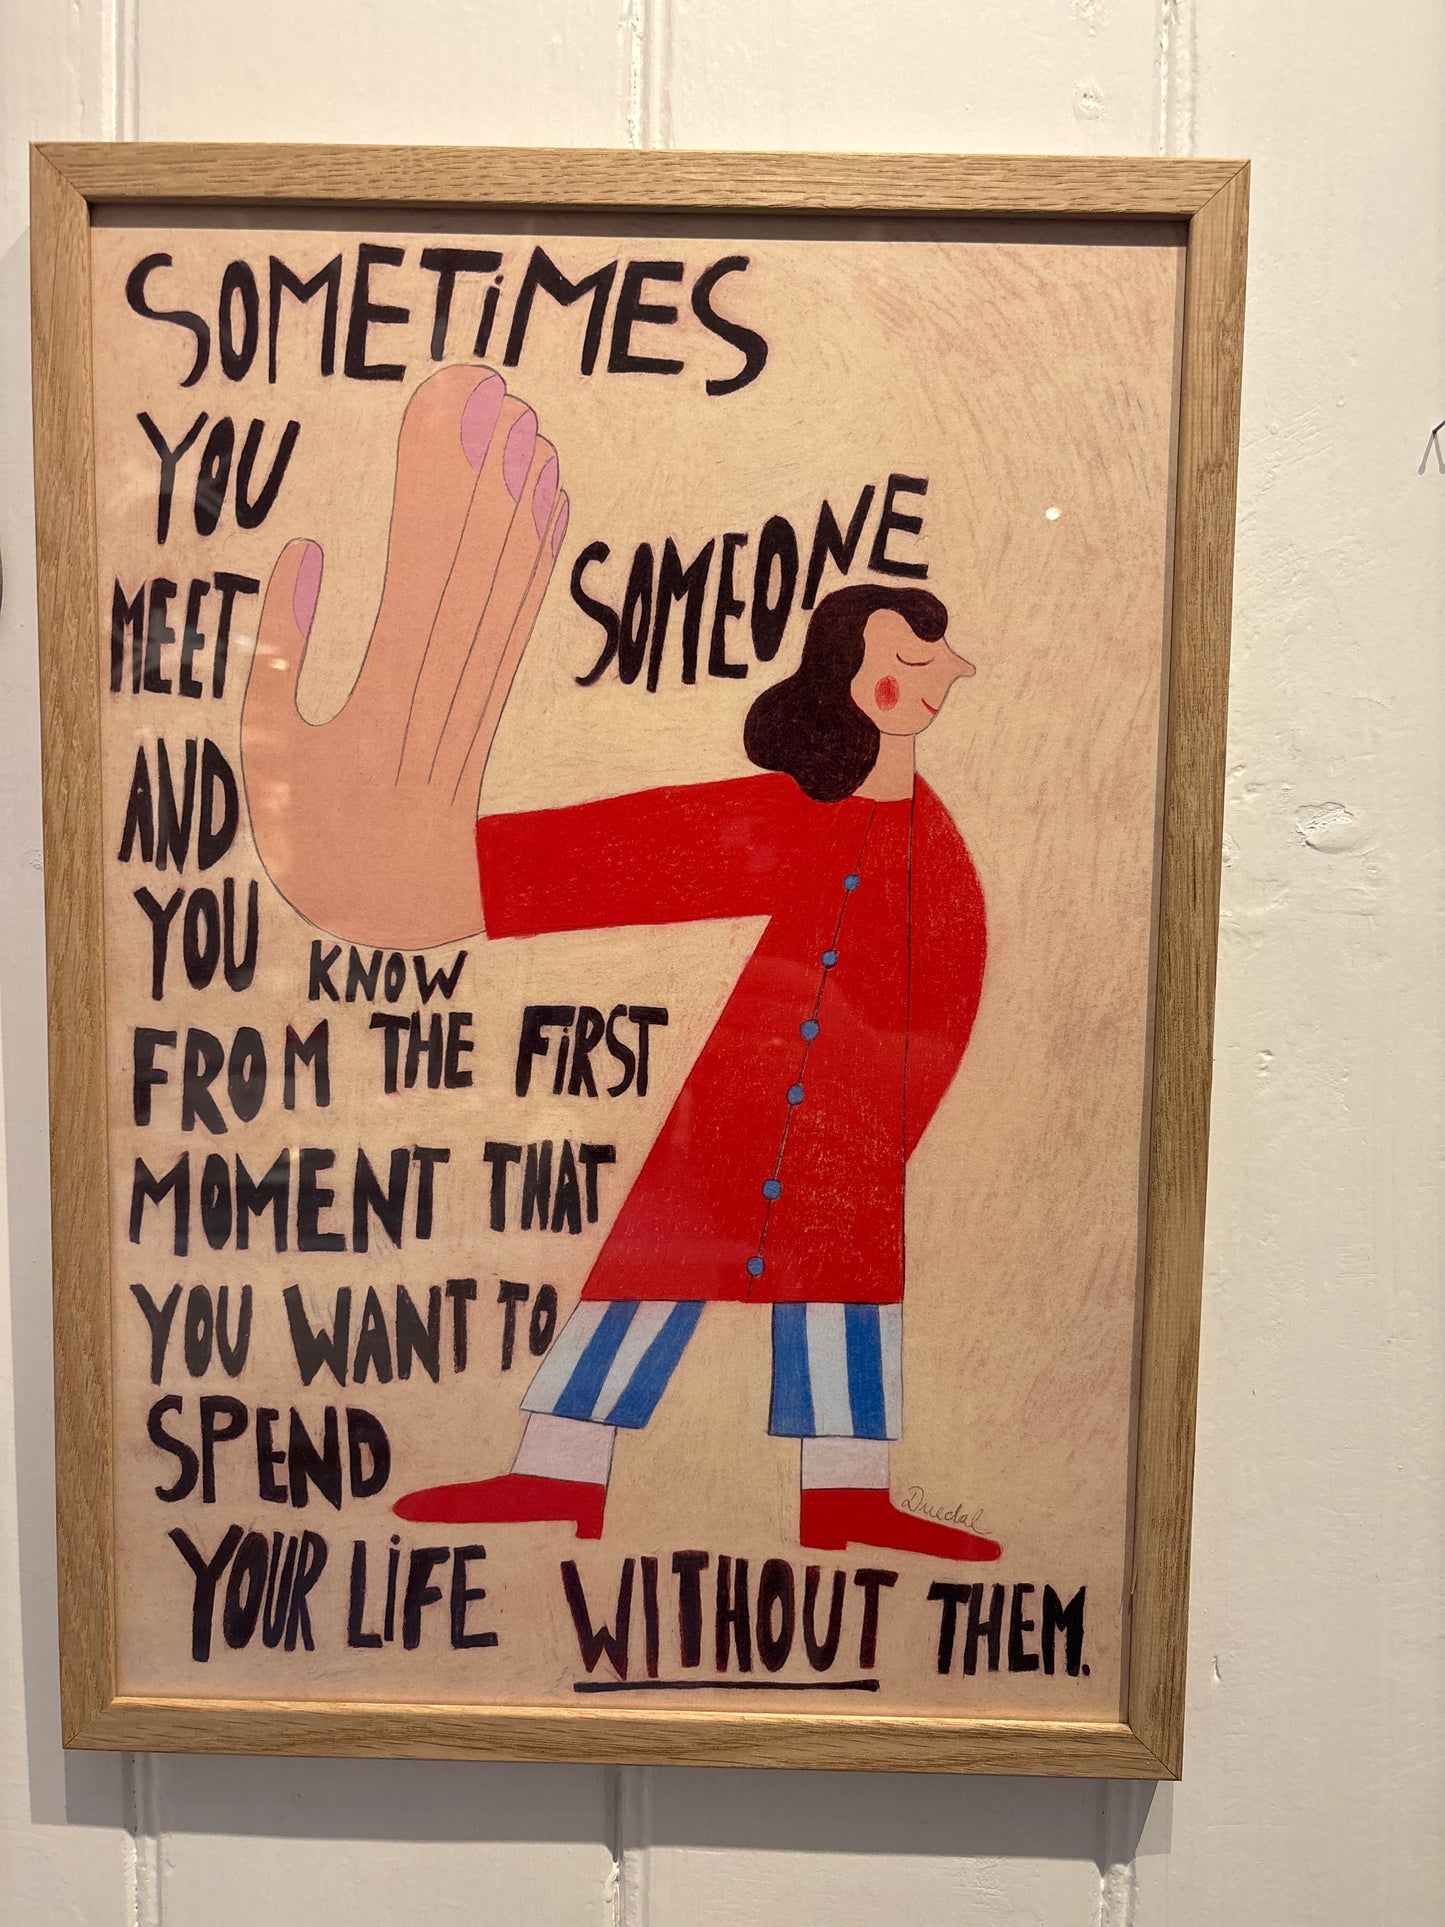 SOMETiMES
YOU
MEET SOMEONE
AND
YOU KNOW
FROM THE FiRST
MOMENT THAT
YOU WANT TO
SPEND
YOUR LiFE WITHOUT THEM.
Duedal